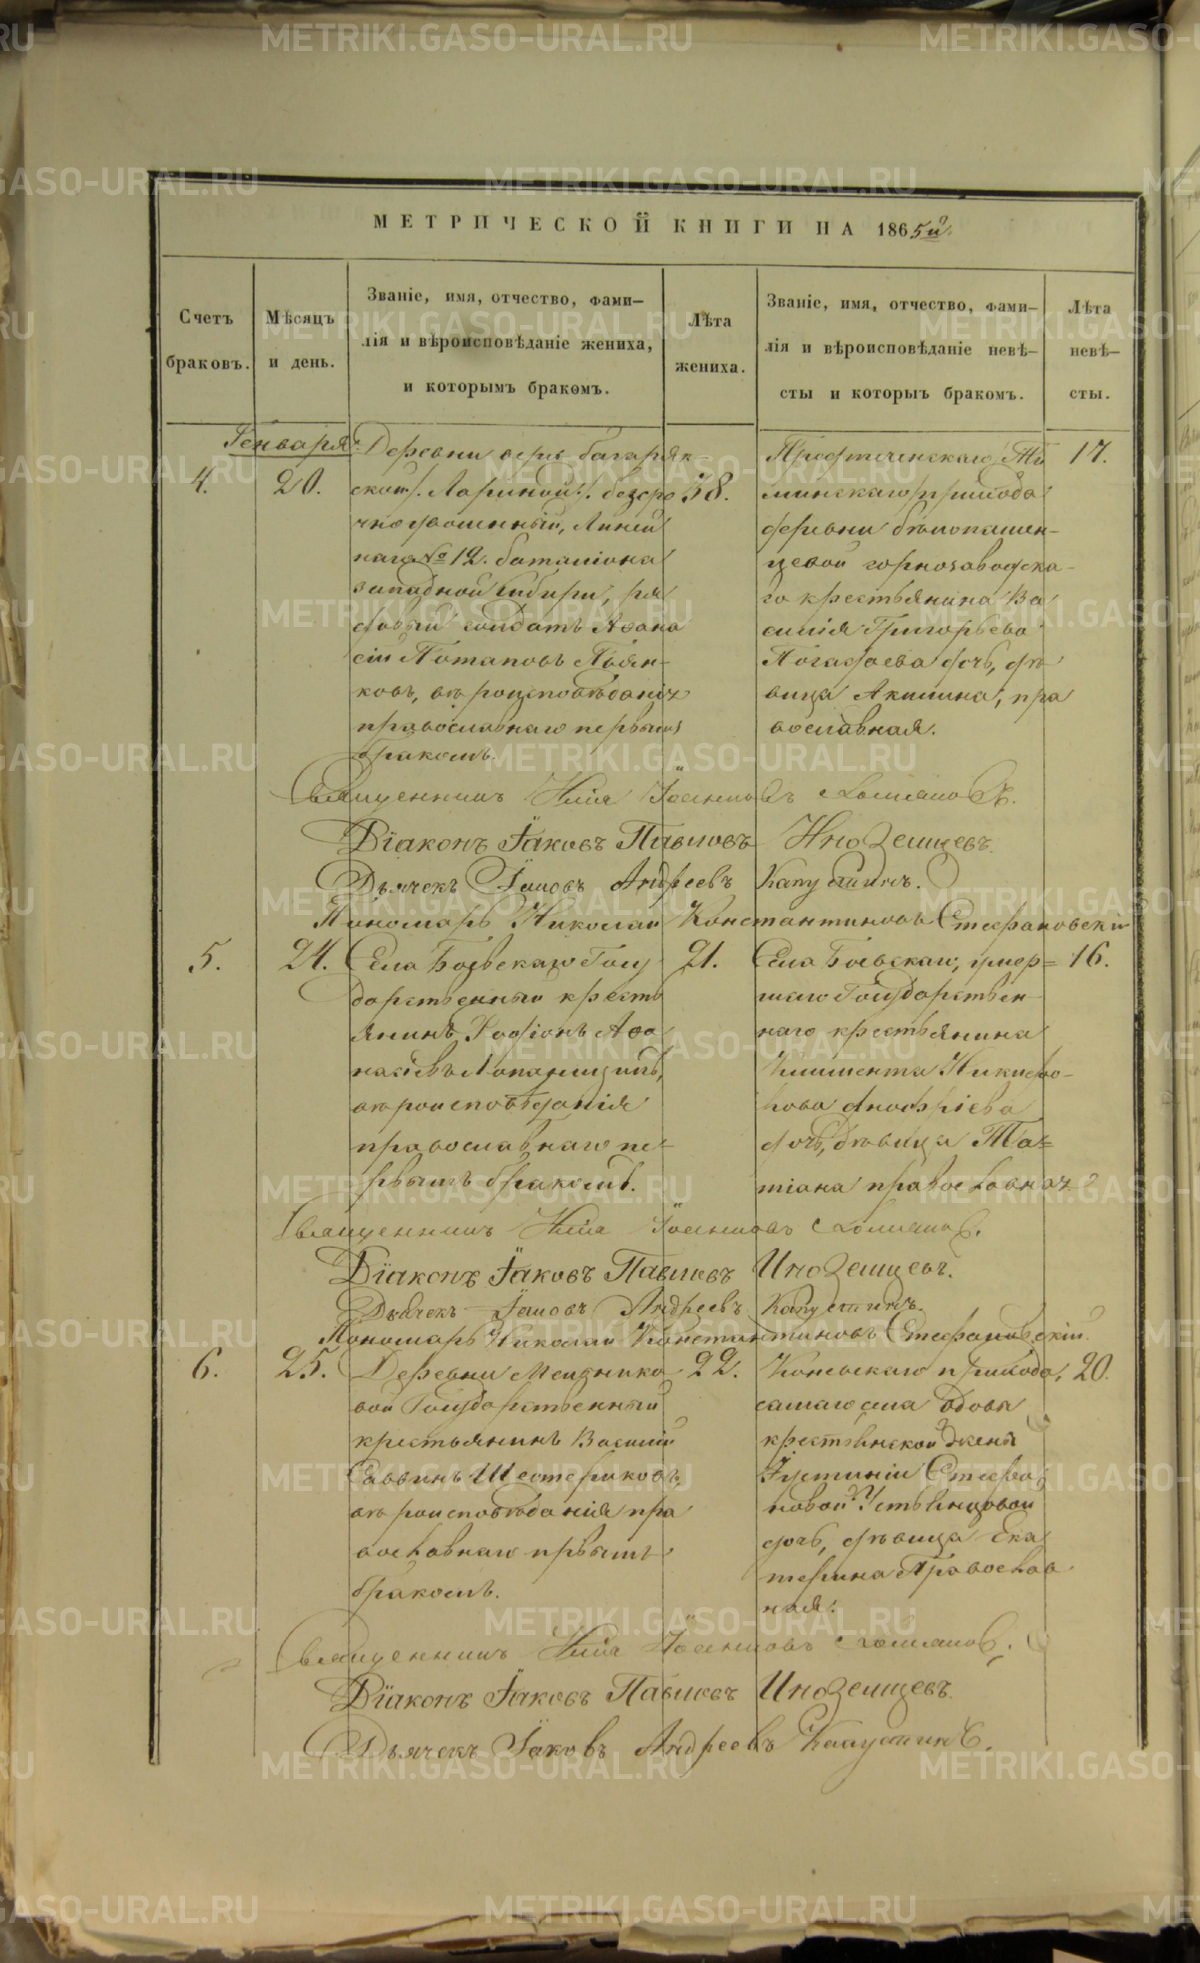 МЕТРИЧЕСКОЙ КНИГИ НА 1865й.
Счетъ браковъ.
Мѣсяцъ и день.
Званіе, имя, отчество, фами-
лія и вѣроисповѣданіе жениха,
и которымъ бракомъ.
Лѣта
жениха.
Званіе, имя, отчество, фами-
лія и вѣроисповѣданіе невѣ-
сты и которыъ бракомъ.
Лѣта
невѣ-
сты.
Генваря
4.
20.
Деревни верхъ багаряк-
ской /:Лариной:/ безсро
чноотпускный, Линей
наго № 12. баталіона
западной Сибири, ря
довый солдатъ Афана
сій Потаповъ
ковъ, вѣроисповѣданія
православнаго первымъ
бракомъ.
38.
минскаго прихода
деревни бѣлопашен-
цевой горнозаводска-
го крестьянина Ва
силія Григорьева
Погадаева дочь, дѣ
вица Акилина, пра
вославная.
17.
Священникъ Илія Іоанновъ
Діаконъ Іаковъ Павловъ Иноземцевъ.
Дьячекъ Іаковъ Андреевъ Капустинъ.
Пономарь Николай Константиновъ Стефановскій
5.
24.
Села Боевскаго Госу
дарственный кресть
янинъ Іосифонъ Афа
насьевъ Лопатищивъ,
вѣроисповѣданія
православнаго пе-
рвымъ бракомъ.
21.
Села Боевскаго, умер=
шаго Государствен
наго крестьянина
Климента Никифо-
рова Анофріева
дочь, дѣвица Та=
тіана православная
16.
Священникъ Илія Іоанновъ
Діаконъ Іаковъ Павловъ Иноземцевъ.
Дьячекъ Іаковъ Андреевъ Капустинъ.
Пономарь Николай Константиновъ Стефановскій.
6.
25.
Деревни Мельнико
вой Государственный
крестьянинъ Василій
Саввинъ Шестериковъ,
вѣроисповѣданія пра
вославнаго первымъ
бракомъ.
22.
Коневскаго прихода,
самаго села вдовы
крестьянской жены
Іустиніи Стефа
новой Устьянцовой
дочь, дѣвица Ека
терина Православ
ная.
20.
Священникъ Илія Іоанновъ
Діаконъ Іаковъ Павловъ Иноземцевъ.
Дьячекъ Іаковъ Андреевъ Капустинъ.
METRIKI.GASO-URAL.RU